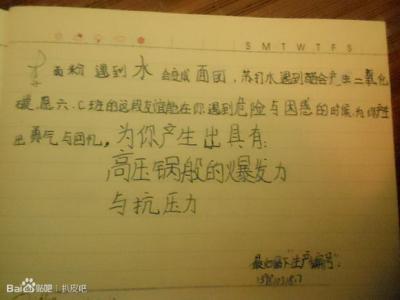 S M T W T F S
面粉遇到水会变成面团,苏打水遇到醋会产生二氧化
碳,愿六.C班的这段友谊能在你遇到危险与困惑的时候,为你产生
出勇气与团札,为你产生出具有:
高压锅般的爆发力
与抗压力
最后留下"生产编号":
Bai贴吧 | 扒皮吧